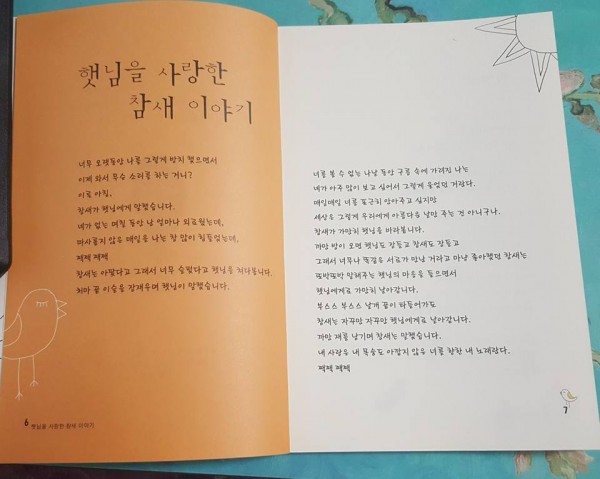 햇님을 사랑한
참새 이야기
너무 오랫동안 나를 그렇게 방치 했으면서
이제 와서 무슨 소리를 하는 거니?
이른 아침,
참새가 햇님에게 말했습니다.
네가 없는 며칠 동안 난 얼마나 외로웠는데,
따사롭지 않은 매일을 나는 참 많이 힘들었는데,
짹짹 짹짹
참새는 아팠다고 그래서 너무 슬펐다고 햇님을 쳐다봅니다.
처마 끝 이슬을 잠재우며 햇님이 말했습니다.
6 햇님을 사랑한 참새 이야기
너를 볼 수 없는 나날 동안 구름 속에 가려진 나는
네가 아주 많이 보고 싶어서 그렇게 울었던 거란다.
매일매일 너를 포근히 안아주고 싶지만
세상은 그렇게 우리에게 아름다운 날만 주는 건 아니구나.
참새가 가만히 햇님을 바라봅니다.
까만 밤이 오면 햇님도 잠들고 참새도 잠들고
그래서 너무나 똑같은 서로가 만난 거라고 마냥 좋아했던 참새는
또박또박 말해주는 햇님의 마음을 들으면서
햇님에게로 가만히 날아갑니다.
부스스 부스스 날개 끝이 타들어가도
참새는 자꾸만 자꾸만 햇님에게로 날아갑니다.
까만 재를 남기며 참새는 말했습니다.
내 사랑은 내 목숨도 아깝지 않은 너를 향한 내 노래란다.
짹짹 짹짹
7